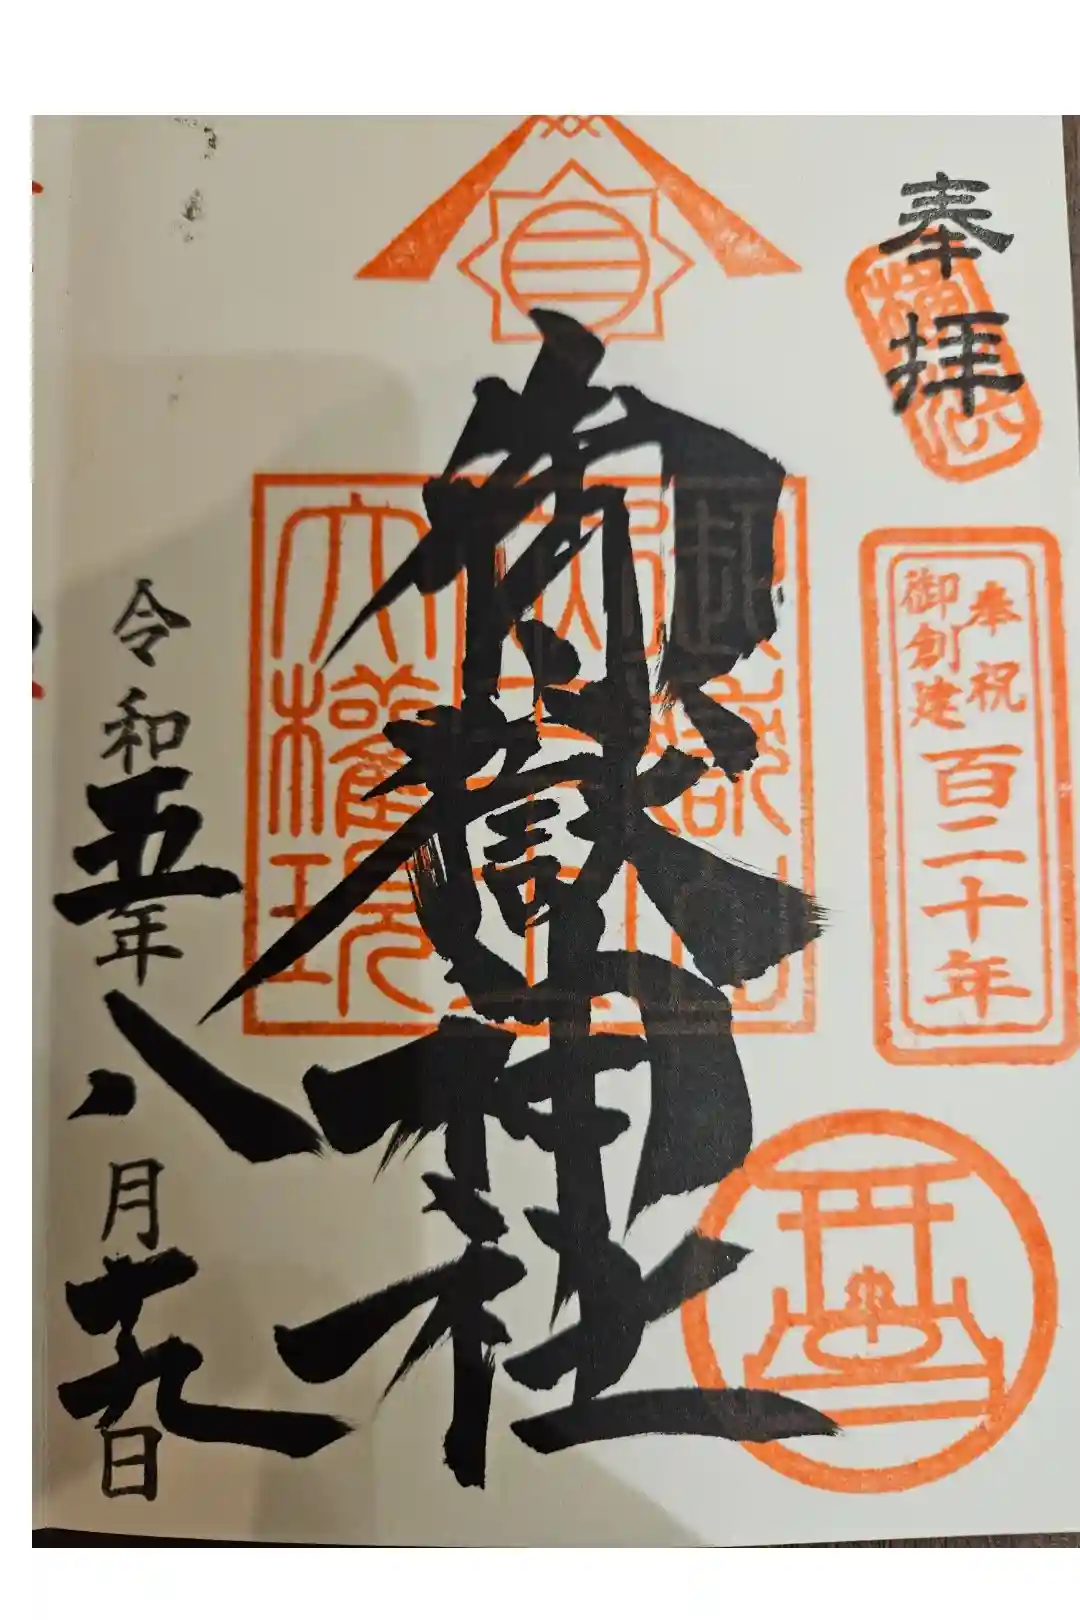 奉拝
奉祝
御創建
百二十年
御嶽神社
大權現
令和五年八月十九日